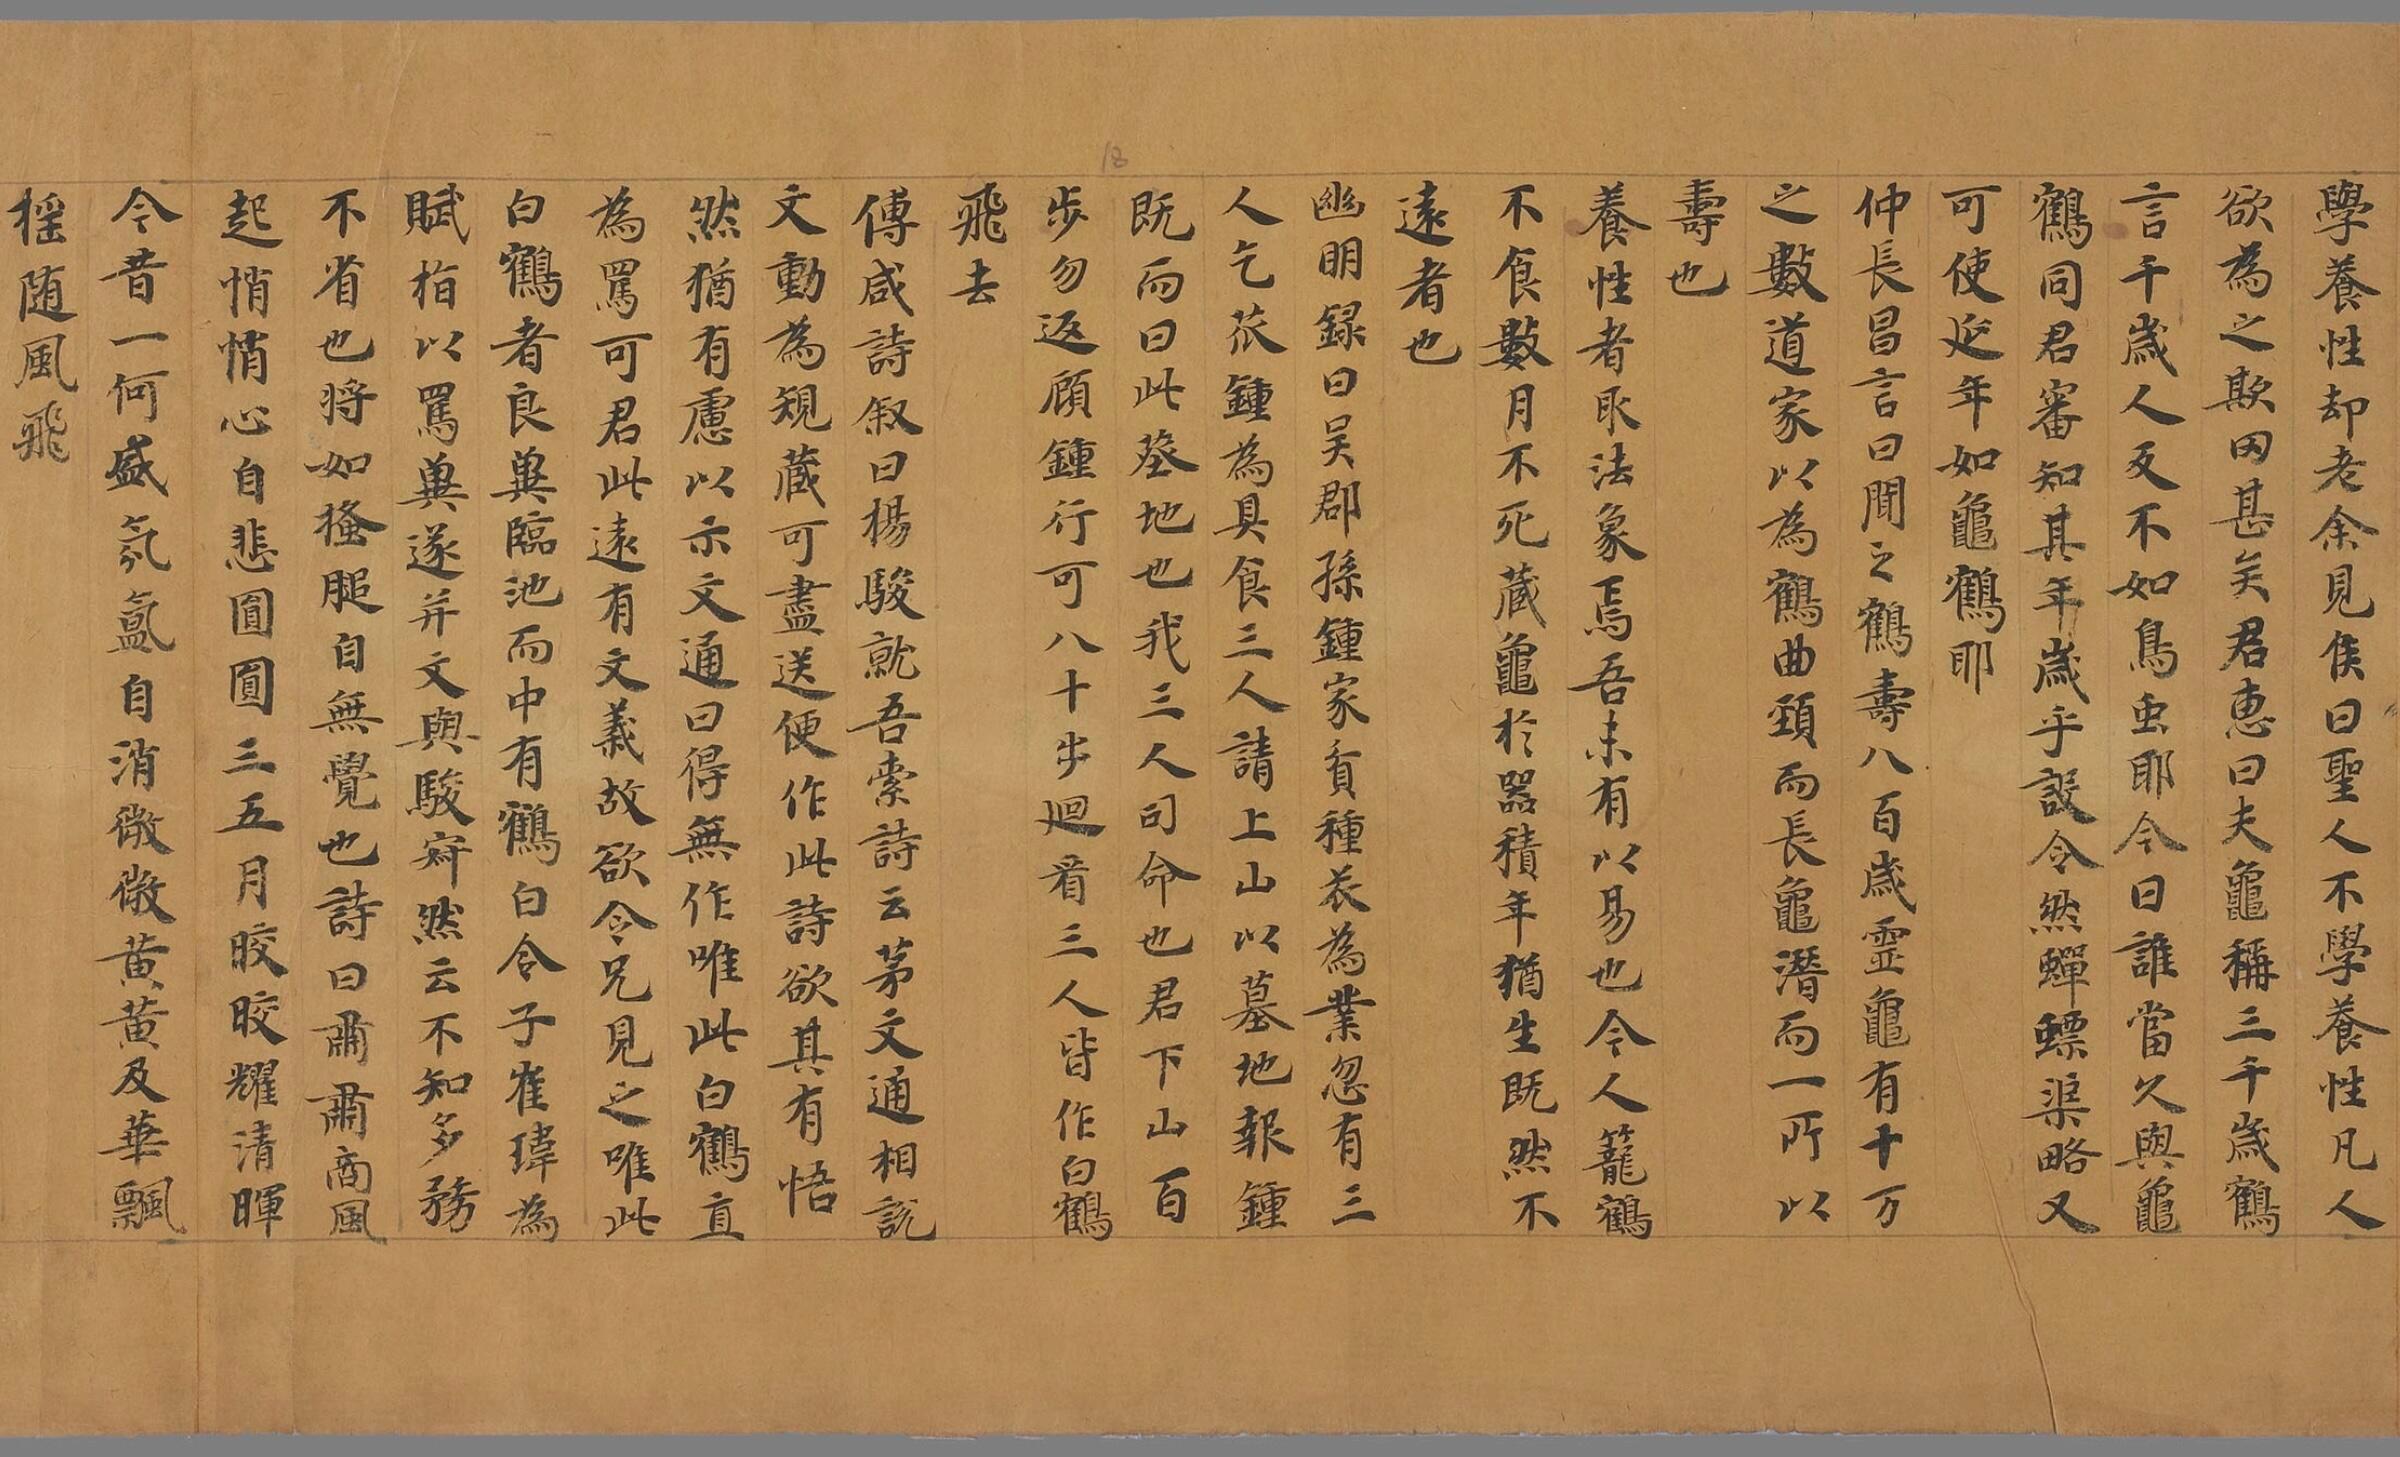 學養性却老余見侯曰聖人不學養性凡人
欲為之欺罔甚矣君惠曰夫龜稱三千歲鶴
言千歲人反不如鳥虫耶今曰誰當久與龜
鶴同君審知其年歲乎設令然蟬螵渠略又
可使延年如龜鶴耶
仲長昌言曰聞之鶴壽八百歲靈龜有十万
之數道家以為鶴曲頚而長龜潛而一所以
壽也
養性者取法象焉吾未有以易也令人籠鶴
不食數月不死藏龜於器積年猶生既然不
遠者也
幽明録曰吴郡孫鍾家貧種苽為業忽有三
人乞苽鍾為具食三人請上山以墓地報鍾
既而曰此葬地也我三人司命也君下山百
步勿返顧鍾行可八十步迴看三人皆作白鶴
飛去
傅咸詩叙曰楊駿就吾索詩云茅文通相說
文動為規藏可盡送便作此詩欲其有悟
然猶有慮以示文通曰得無作唯此白鶴直
為罵可君此遠有文義故欲令兄見之唯此
白鶴者良糞臨池而中有鶴白令子崔瑋為
賦指以罵糞遂并文與駿寂然云不知多務
不省也將如搔腿自無覺也詩曰肅肅商風
起悄悄心自悲圓圓三五月皎皎耀清暉
今昔一何盛氛氳自消微微黄黄及華飄
猺随風飛
18